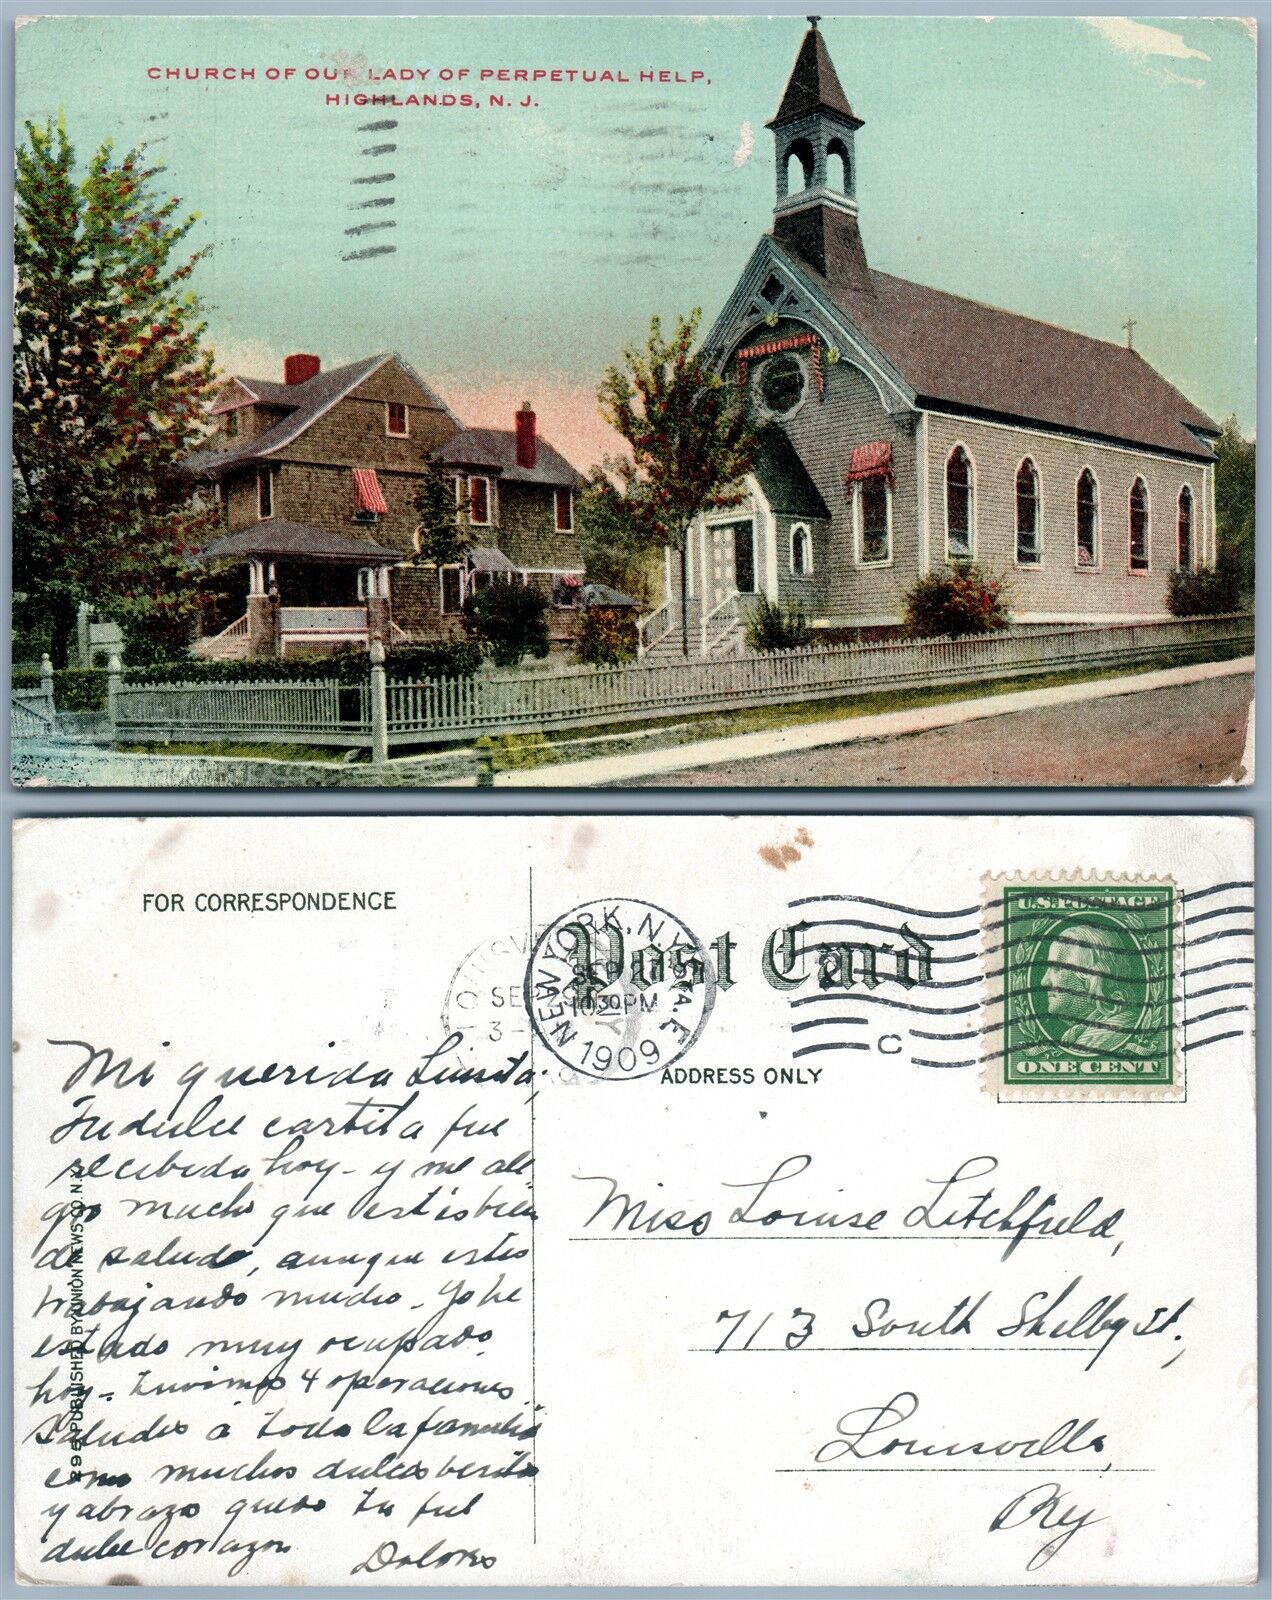 CHURCH OF OUR LADY OF PERPETUAL HELP,
HIGHLANDS, N. J.
FOR CORRESPONDENCE
Post Card
NEW YORK, N.Y. STA. F
SEP 27
10 30 PM
1909
SEP 29
3 -
C
U.S. POSTAGE
ONE CENT
ADDRESS ONLY
Mi querida Luisita;
Tu dulce cartita fue
recibida hoy - y me ale
gro mucho que estés bien
de salud, aunque estés
trabajando mucho - Yo he
estado muy ocupado
hoy - tuvimos 4 operaciones
Saludes á toda la familia
como muchos dulces besitos
y abrazo quedo tu fiel
dulce corazon Dolores
295 PUBLISHED BY UNION NEWS CO. N.Y.
Miss Louise Litchfield,
713 South Shelby St.,
Louisville,
Ky